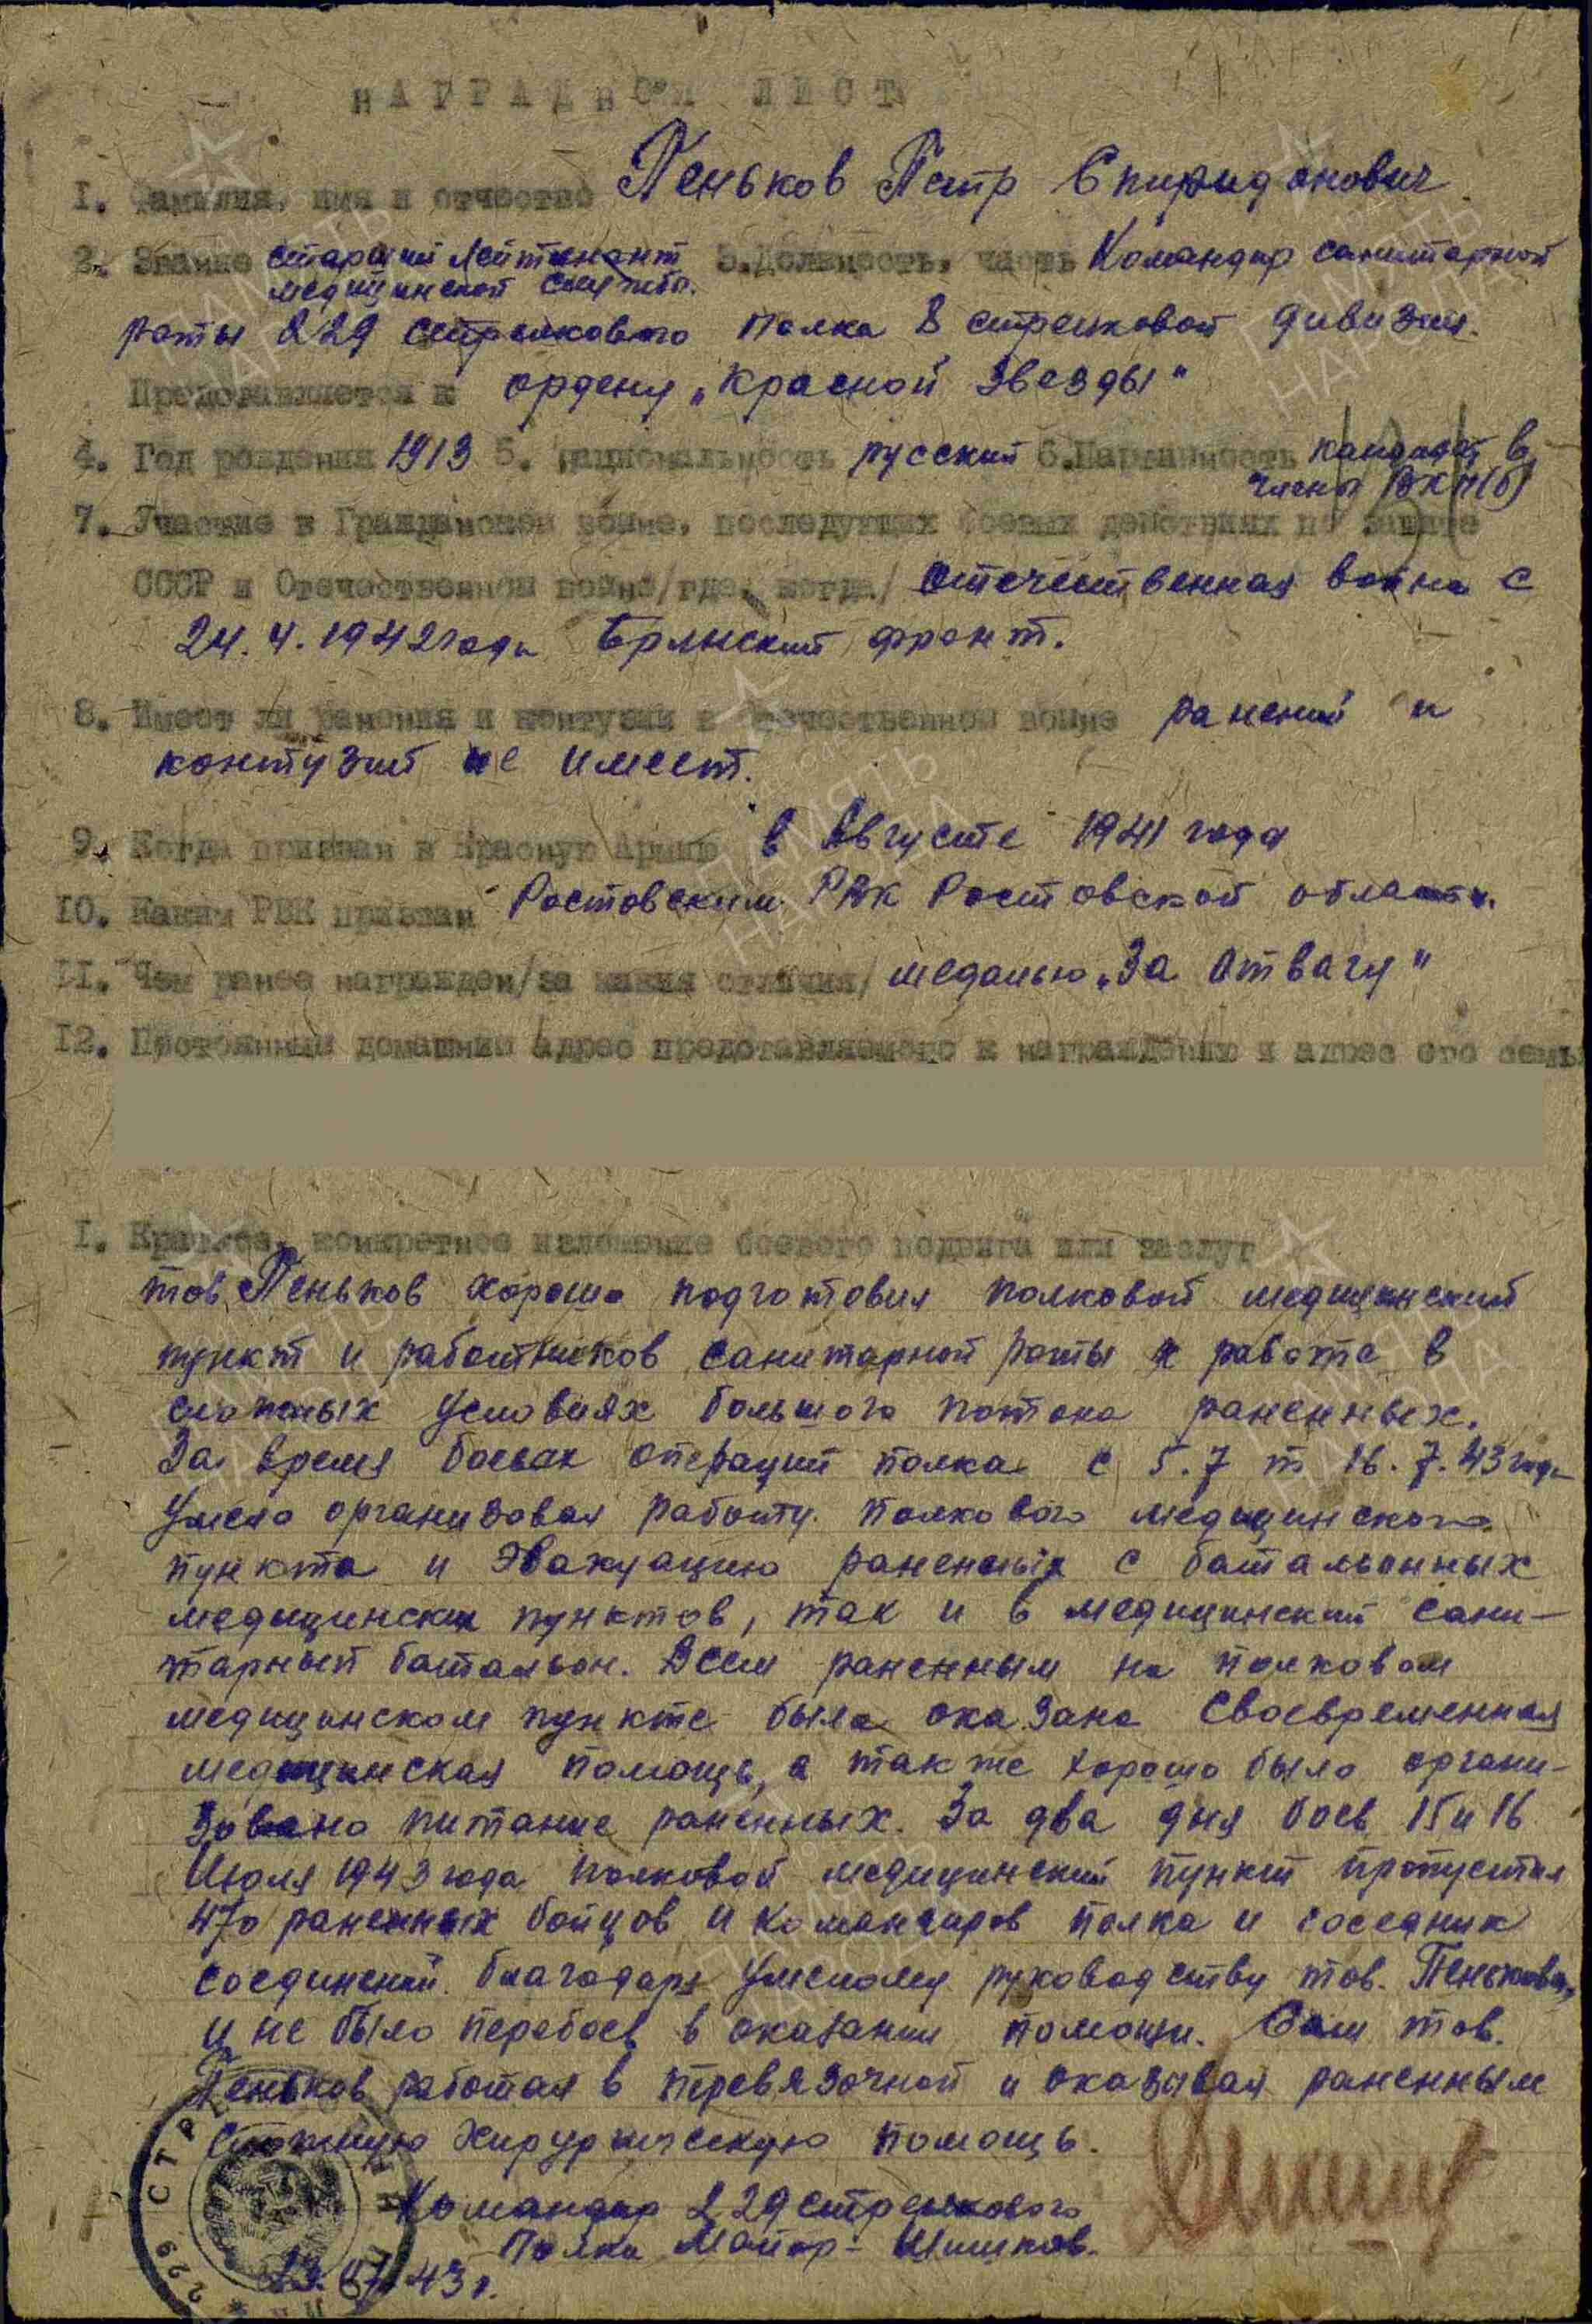 НАГРАДНОЙ ЛИСТ
1. Фамилия, имя и отчество Пеньков Петр Спиридонович
2. Звание старший лейтенант 3. Должность, часть Командир санитарной
медицинской службы.
роты 229 стрелкового полка 8 стрелковой дивизии.
Представляется к ордену „Красной Звезды"
4. Год рождения 1913 5. Национальность русский 6. Партийность кандидат в
члены ВКП(б)
7. Участие в Гражданской войне, последующих боевых действиях по защите
СССР и Отечественной войне/где, когда/ отечественная война с
24.4.1942 года Брянский фронт.
8. Имеет ли ранения и контузии в отечественной войне ранений и
контузий не имеет.
9. Когда призван в Красную Армию в Августе 1941 года
10. Каким РВК призван Ростовским РВК Ростовской области.
11. Чем ранее награжден/за какия отличия/ медалью „За Отвагу"
12. Постоянный домашний адрес представляемого к награждению и адрес его семьи
1. Краткое, конкретное изложение боевого подвига или заслуг
тов. Пеньков хорошо подготовил полковой медицинский
пункт и работников санитарной роты к работе в
сложных условиях большого потока раненных.
За время боевых операций полка с 5.7 по 16.7.43 года
Умело организовал работу полкового медицинского
пункта и эвакуацию раненных с батальонных
медицинских пунктов, так и в медицинский сани-
тарный батальон. Всем раненным на полковом
медицинском пункте была оказана своевременная
медицинская помощь, а также хорошо было органи-
зовано питание раненных. За два дня боев 15 и 16
Июля 1943 года полковой медицинский пункт пропустил
470 раненных бойцов и командиров полка и соседних
соединений. благодаря умелому руководству тов. Пенькова,
и не было перебоев в оказании помощи. Сам тов.
Пеньков работал в перевязочной и оказывал раненным
сложную хирургическую помощь.
Командир 229 стрелкового
Полка Майор - Шишков.
07.43 г.
229 СТР